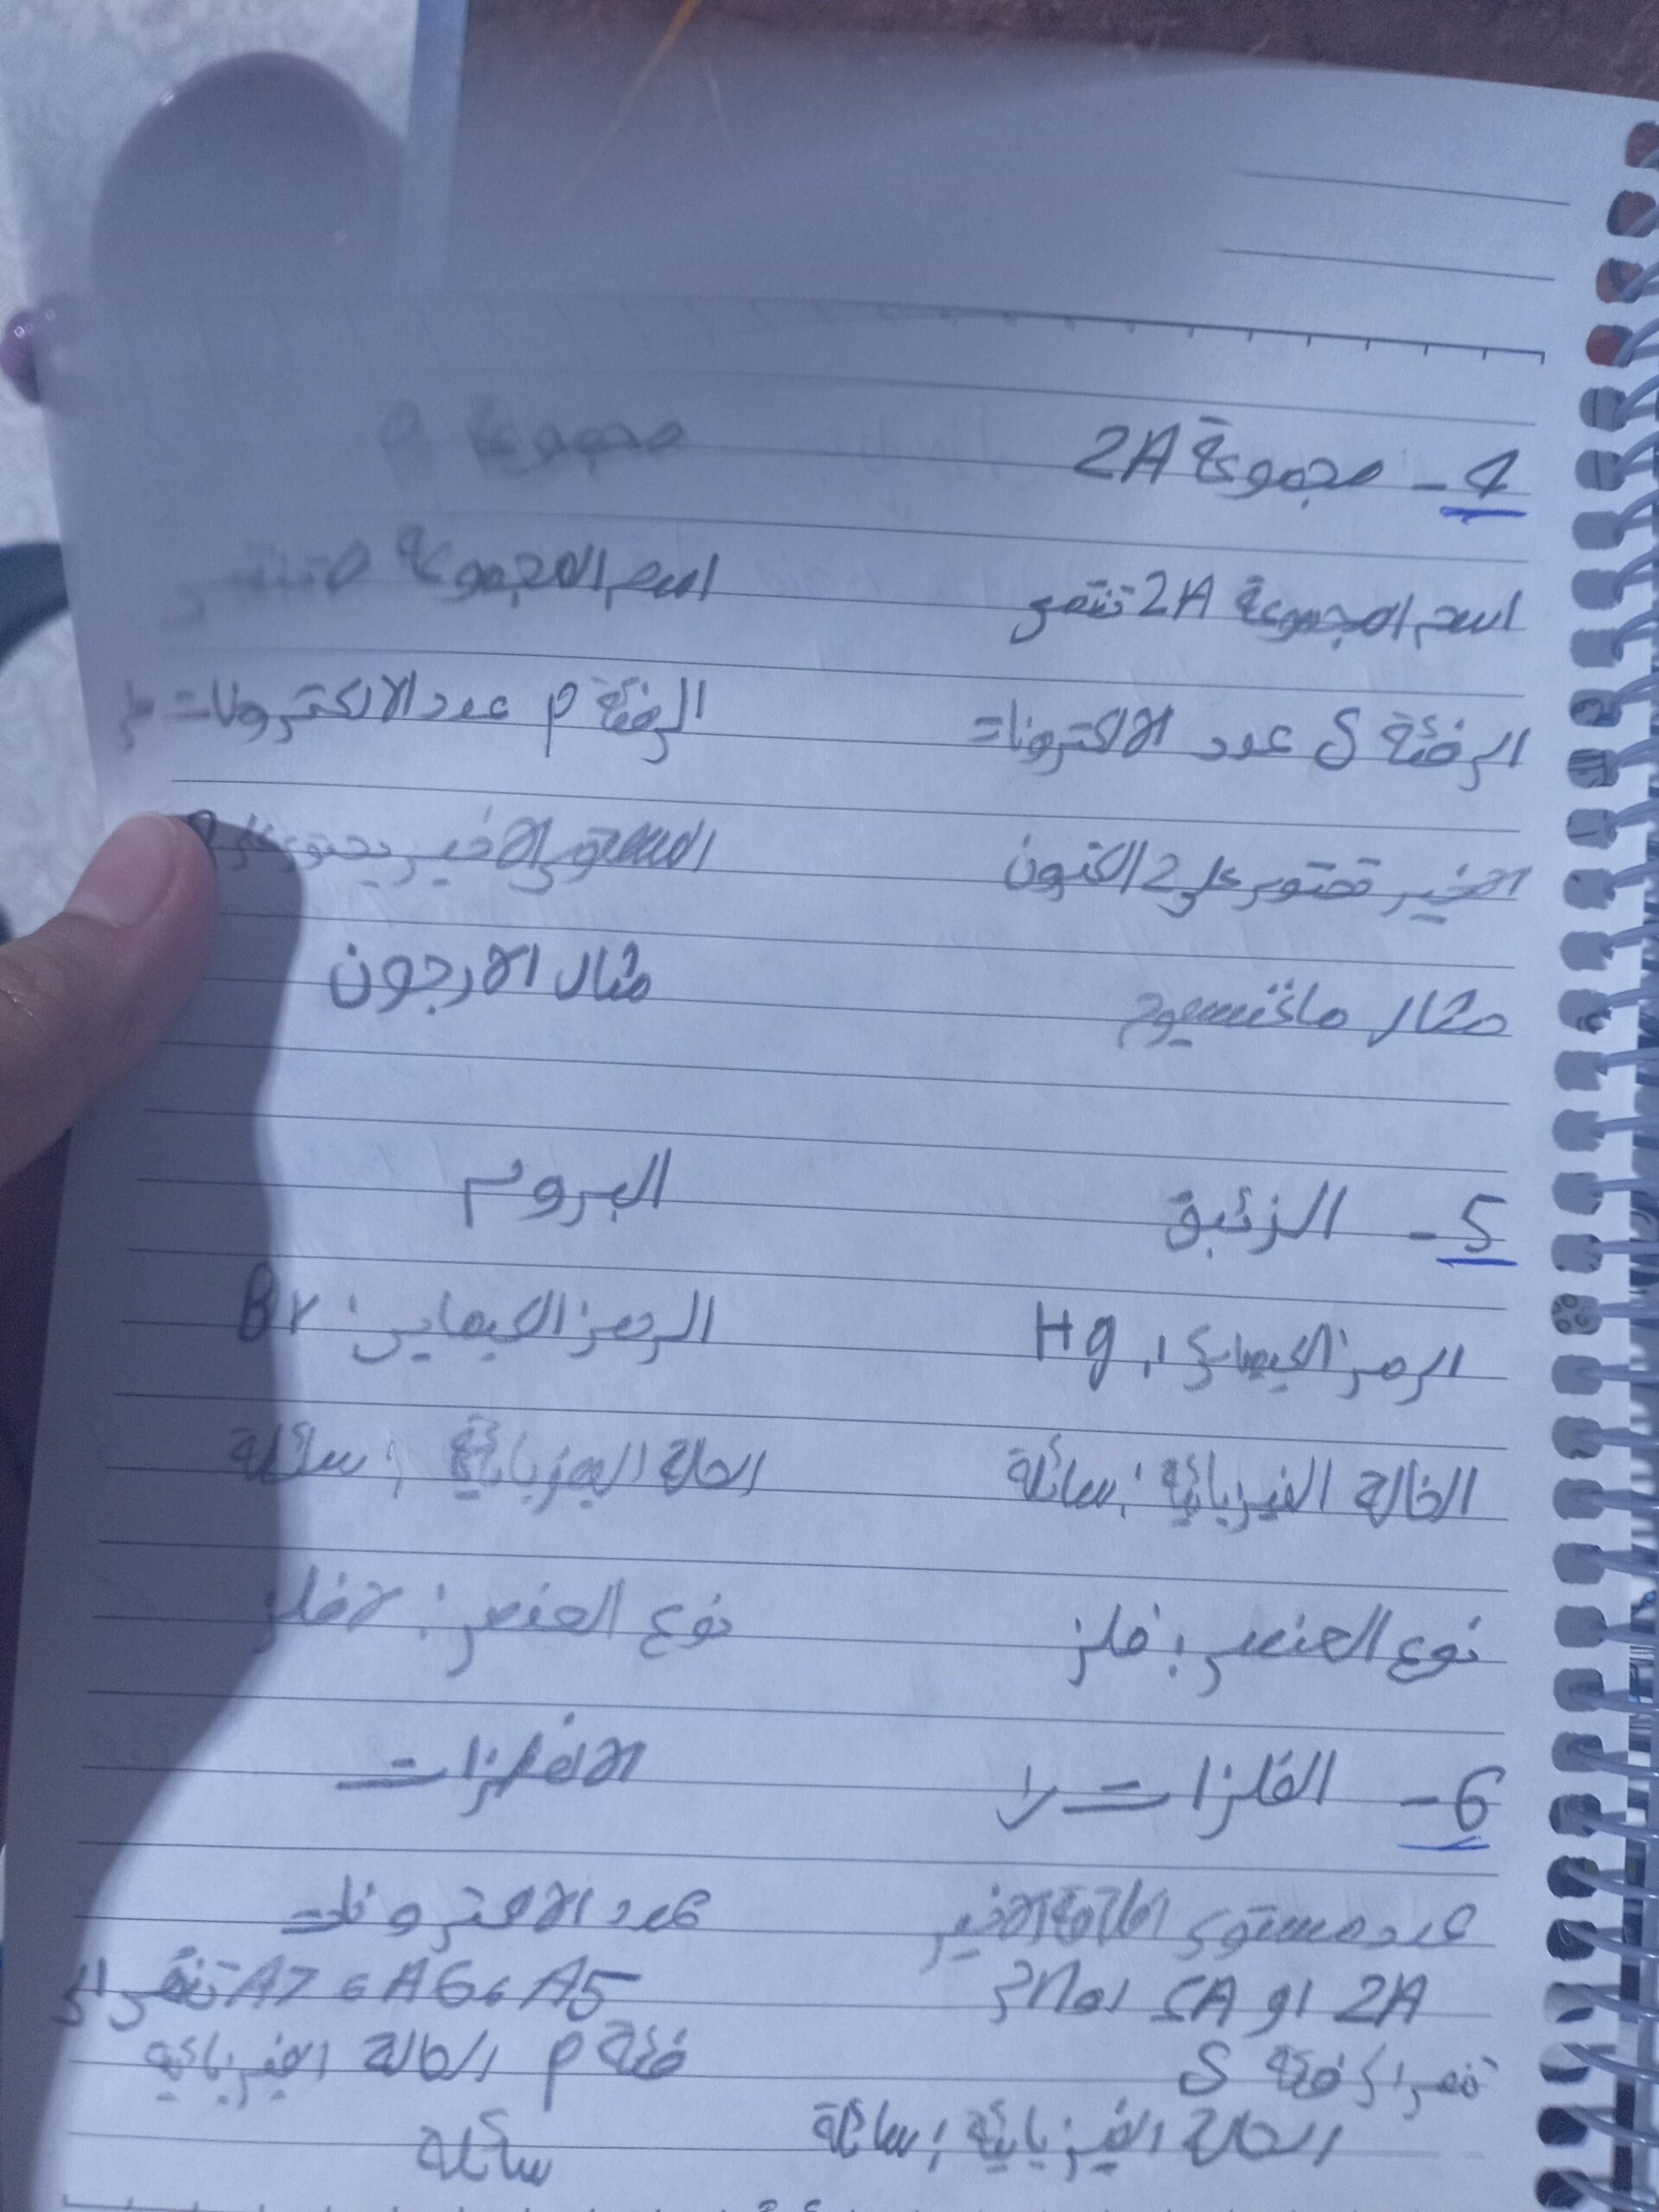 4 - مجموعة 2A
مجموعة 0
اسم المجموعة 2A تنتمي
اسم المجموعة 0
الى فئة S عدد الالكترونات
الى فئة P عدد الالكترونات
الاخير تحتوي على 2 الكترون
المستوى الاخير يحتوي على
مثال ماغنسيوم
مثال الارجون
5 - الزئبق
البروم
الرمز الكيميائي: Hg
الرمز الكيميايي: Br
الحالة الفيزيائية: سائلة
الحالة الفيزيائية: سائلة
نوع العنصر: فلز
نوع العنصر: لافلز
6 - الفلزات
الافلزات
عدد مستوى الطاقة الاخير
عدد الالكترونات
2A او
A5، A6، A7 تنتمي الى
فئة S
فئة P الحالة الفيزيائية
الحالة الفيزيائية: سائلة
سائلة